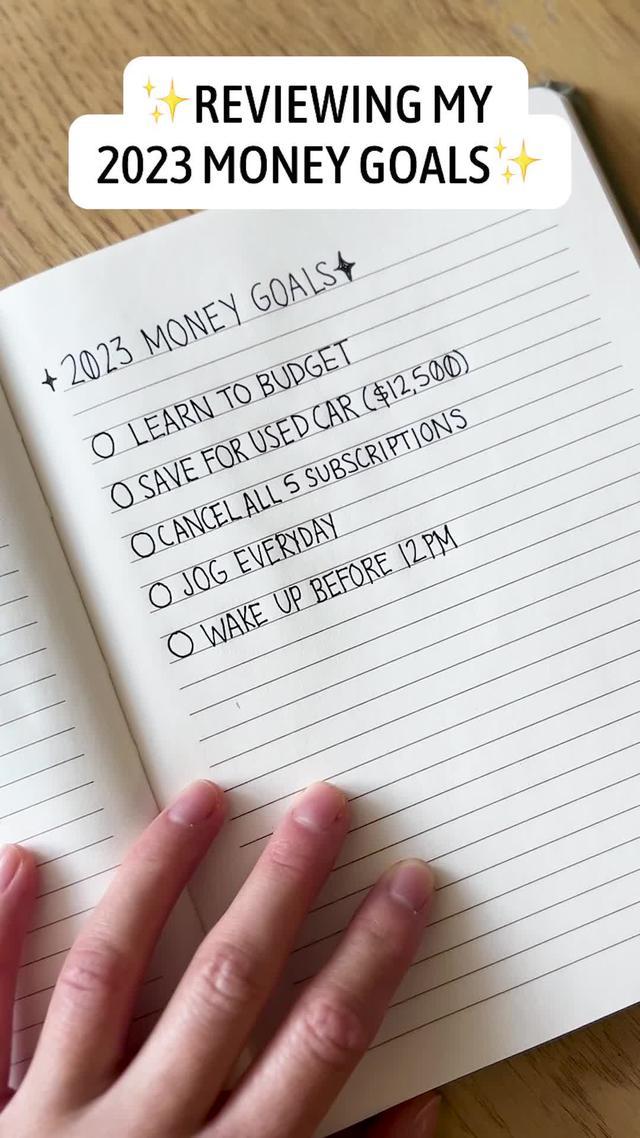 ✨REVIEWING MY
2023 MONEY GOALS✨
2023 MONEY GOALS
LEARN TO BUDGET
SAVE FOR USED CAR ($12,500)
CANCEL ALL 5 SUBSCRIPTIONS
JOG EVERYDAY
WAKE UP BEFORE 12PM